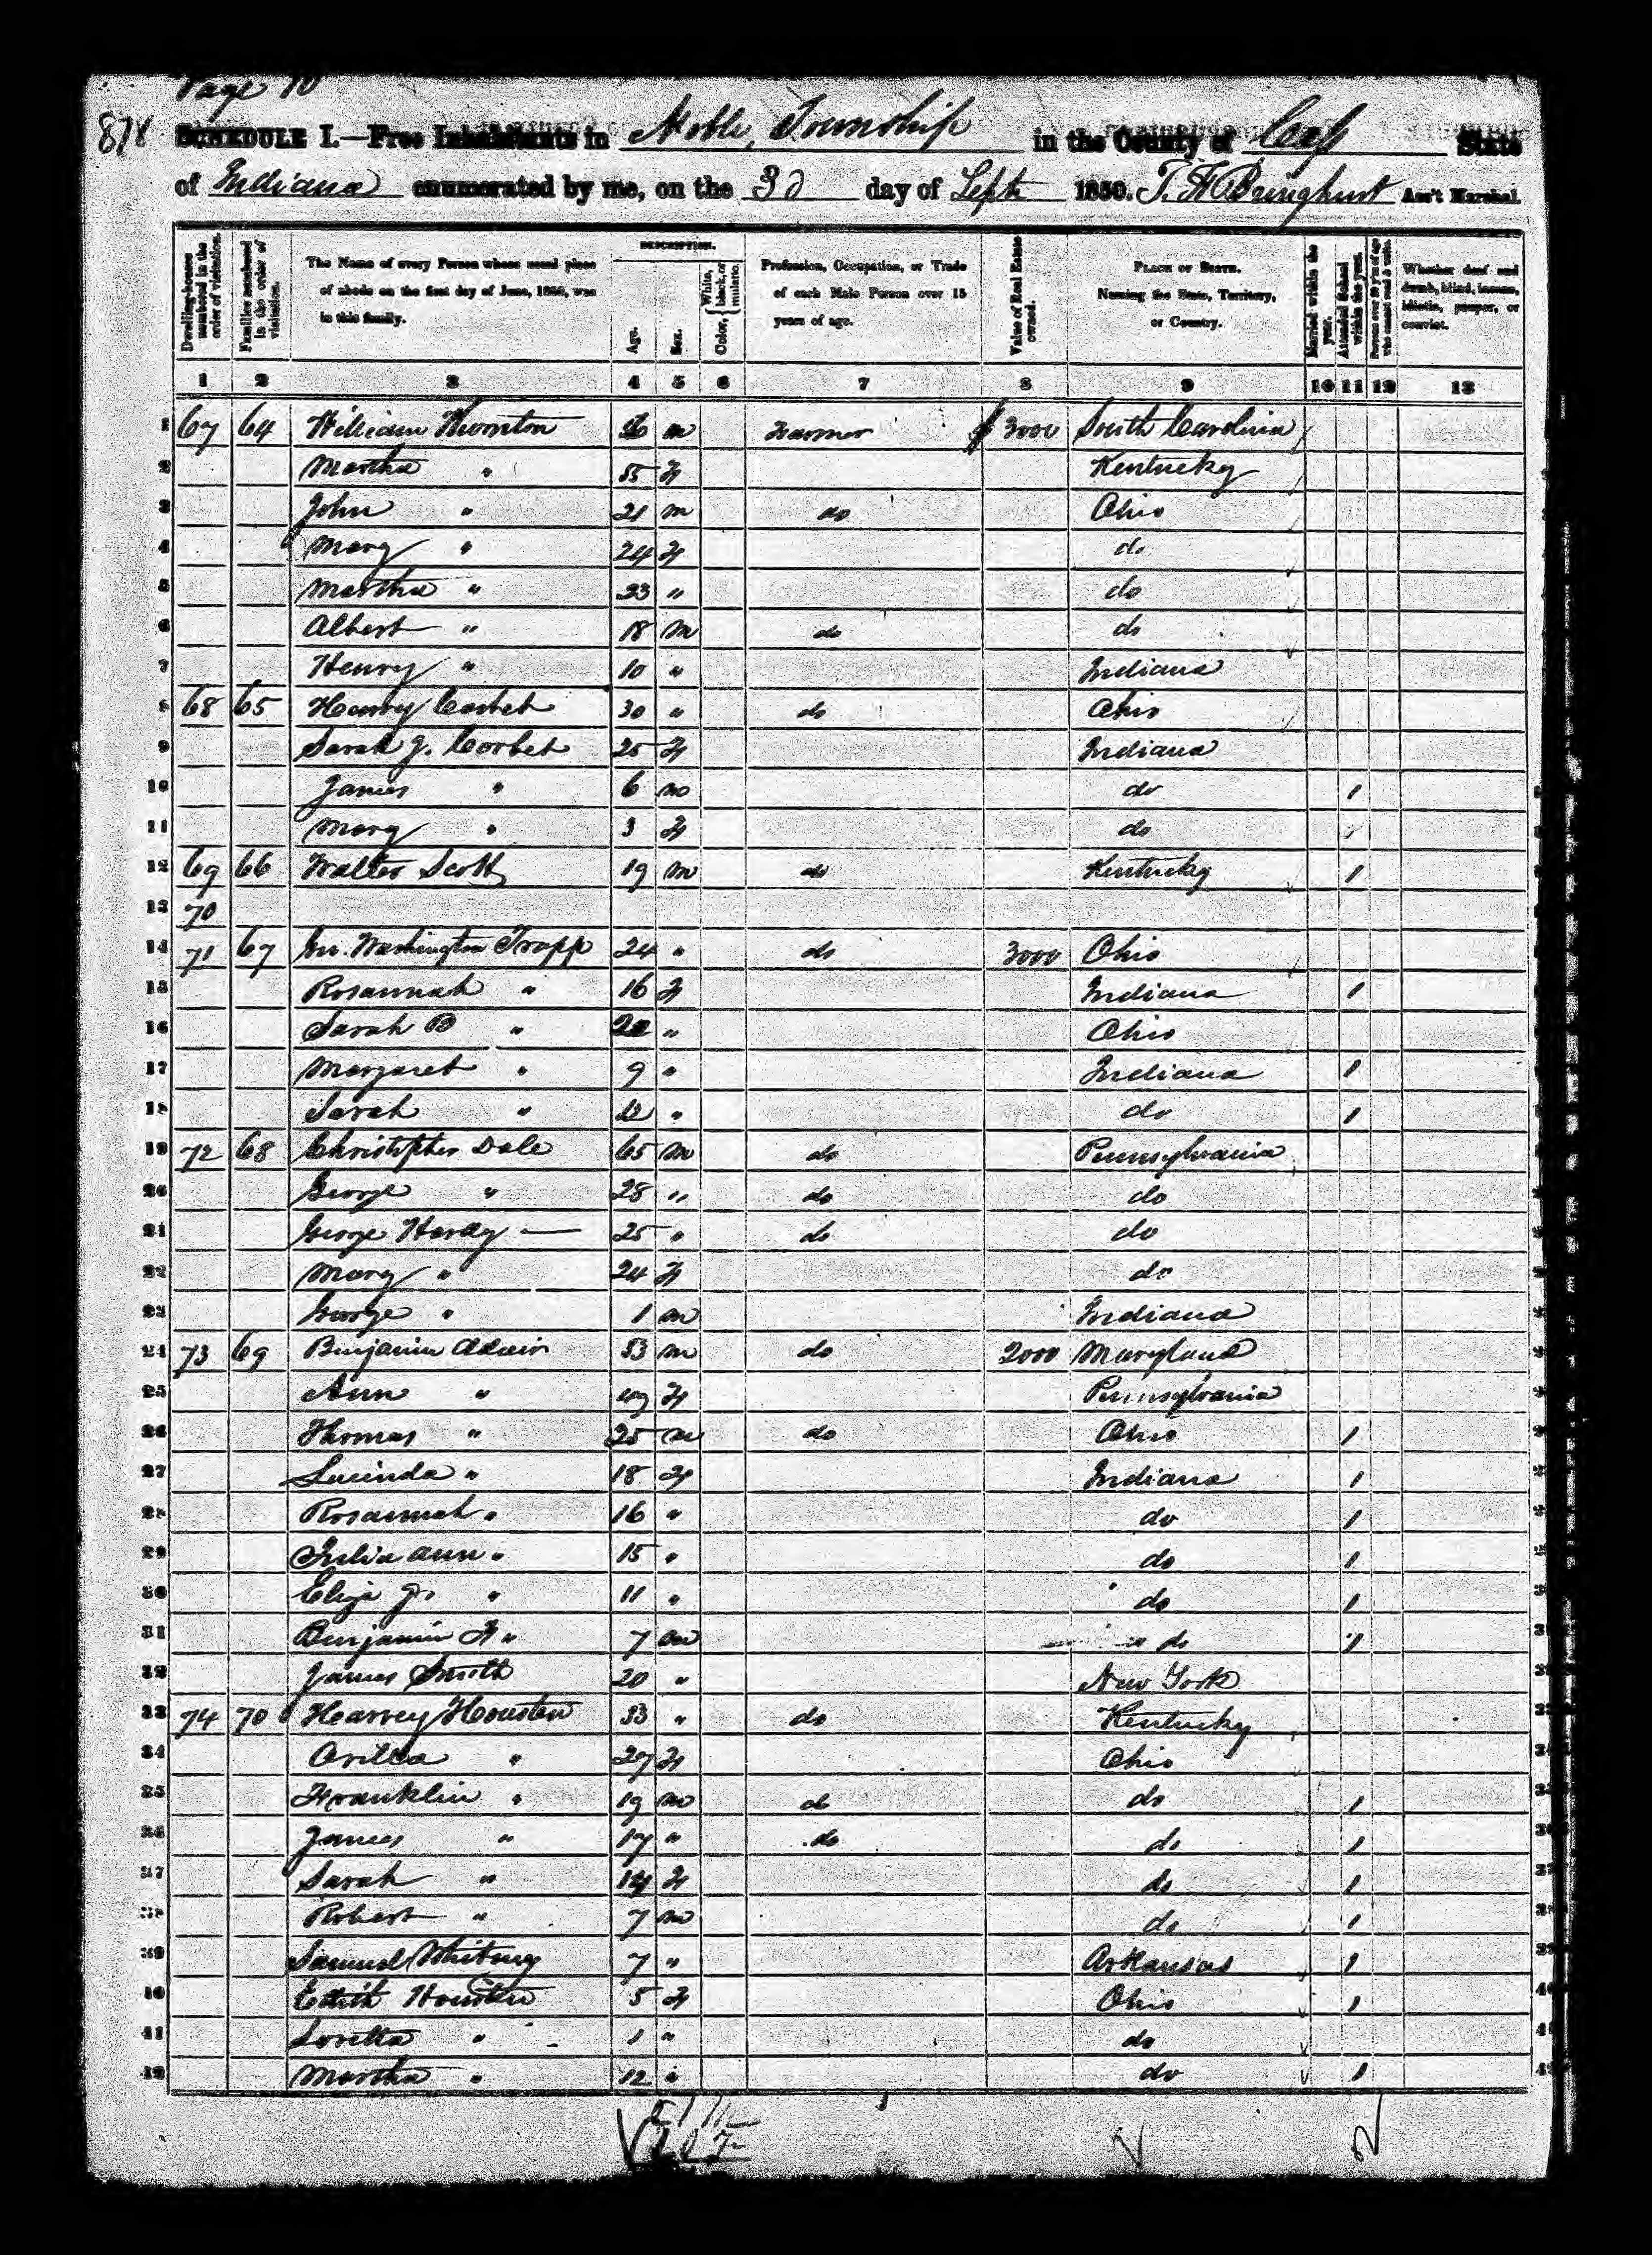 Page 10
878 SCHEDULE I.—Free Inhabitants in Noble Township in the County of Cass State
of Indiana enumerated by me, on the 3d day of Septr 1850. T. H. Bringhurst Ass't Marshal.
Dwelling-houses numbered in the order of visitation.
Families numbered in the order of visitation.
The Name of every Person whose usual place of abode on the first day of June, 1850, was in this family.
DESCRIPTION.
Age.
Sex.
Color, { White, black, or mulatto.
Profession, Occupation, or Trade of each Male Person over 15 years of age.
Value of Real Estate owned.
PLACE OF BIRTH. Naming the State, Territory, or Country.
Married within the year.
Attended School within the year.
Persons over 20 y'rs of age who cannot read & write.
Whether deaf and dumb, blind, insane, idiotic, pauper, or convict.
1 2 3 4 5 6 7 8 9 10 11 12 13
1 67 64 William Thornton m Farmer $ 3000 South Carolina
2 Martha " 55 F Kentucky
3 John " 21 m do Ohio
4 Mary " 24 F do
5 Martha " 23 " do
6 Albert " 18 m do do
7 Henry " 10 " Indiana
8 68 65 Harvey Corbet 30 " do Ohio
9 Sarah J. Corbet 25 F Indiana
10 James " 6 m do 1
11 Mary " 3 F do
12 69 66 Walter Scott 19 m do Kentucky 1
13 70
14 71 67 Washington Trapp 24 " do 3000 Ohio
15 Rosannah " 16 F Indiana 1
16 Sarah B " " Ohio
17 Margaret " 9 " Indiana 1
18 Sarah " 12 " do 1
19 72 68 Christopher Dale 65 m do Pennsylvania
20 George " 28 " do do
21 George Hardy — 25 " do do
22 Mary " 24 F do
23 George " 1 m Indiana
24 73 69 Benjamin Adair 53 m do 2000 Maryland
25 Ann " 49 F Pennsylvania
26 Thomas " 25 m do Ohio 1
27 Lucinda " 18 F Indiana 1
28 Rosannah " 16 " do 1
29 Julia Ann " 15 " do 1
30 Eliza J. " 11 " do 1
31 Benjamin F " 7 m do 1
32 James Smith 20 " New York
33 74 70 Hearvey Housten 53 " do Kentucky
34 Arilla " 27 F Ohio
35 Franklin " 19 m do do 1
36 James " 17 " do do 1
37 Sarah " 14 F do 1
38 Robert " 7 m do 1
39 Samuel Whitney 7 " Arkansas 1
40 Edith Housten 5 F Ohio 1
41 Loretta " 1 " do
42 Martha " 12 " do 1